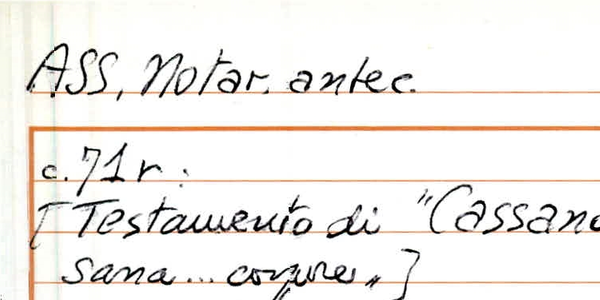 ASS, Notar. antec.
c. 71r:
[Testamento di "Cassan
sana... corpore"]